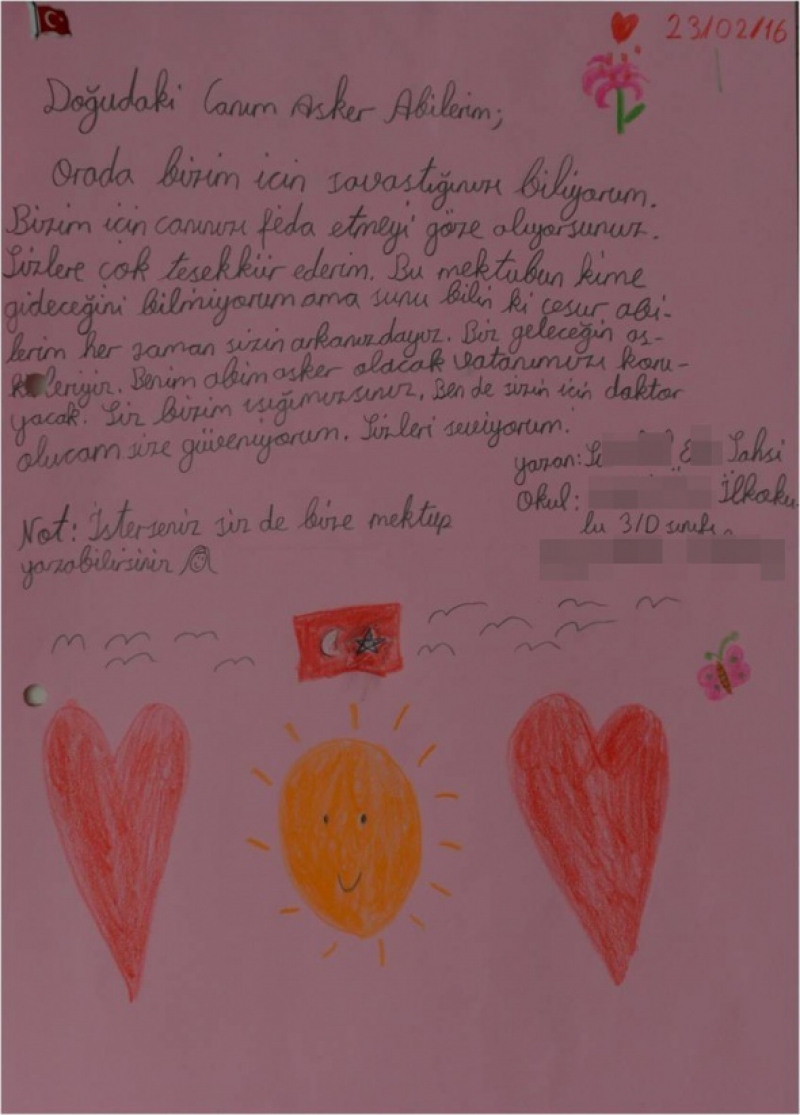 23/02/16
Doğudaki Canım Asker Abilerim;
Orada bizim icin savastığınızı biliyorum.
Bizim için canınızı feda etmeyi göze alıyorsunuz.
Sizlere çok tesekkür ederim. Bu mektubun kime
gideceğini bilmiyorum ama sunu bilin ki cesur abi-
lerim her zaman sizin arkanızdayız. Biz geleceğin as-
leriyiz. Benim abim asker olacak vatanımızı koru-
yacak. Siz bizim ısığımızsınız. Ben de sizin icin doktor
olucam size güveniyorum. Sizleri seviyorum.
yazan: Sahsi
Okul: İlkoku
lu 3/D sınıfı
Not: İsterseniz siz de bize mektup
yazabilirsiniz